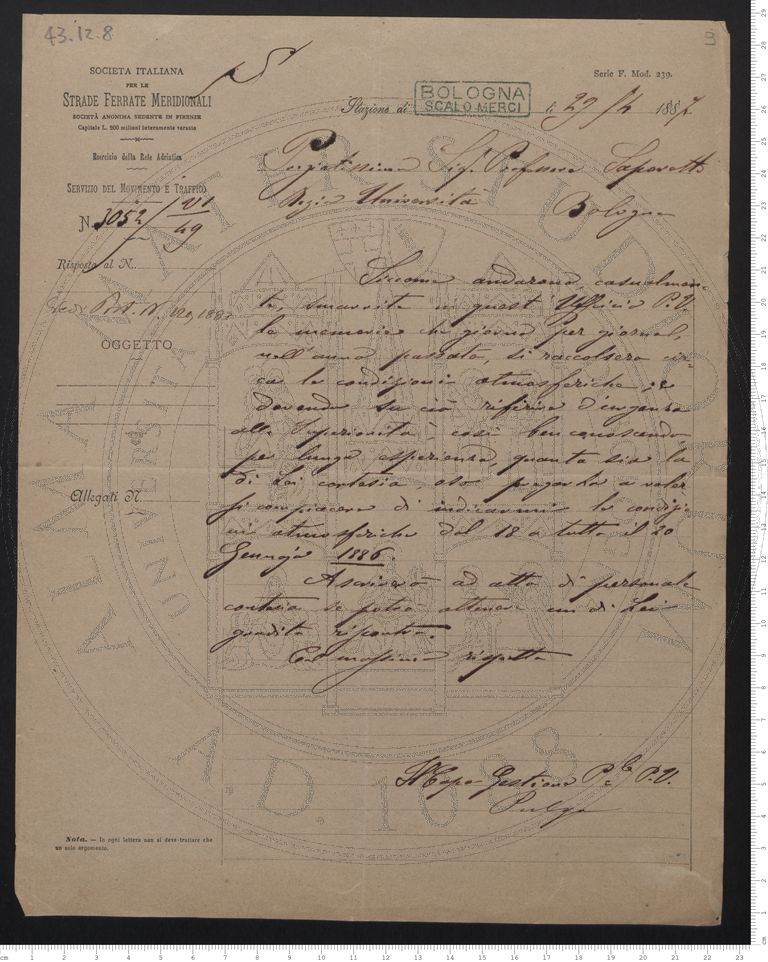 43.12.8
SOCIETÀ ITALIANA
PER LE
STRADE FERRATE MERIDIONALI
SOCIETÀ ANONIMA SEDENTE IN FIRENZE
Capitale L. 200 milioni interamente versato
Esercizio della Rete Adriatica
SERVIZIO DEL MOVIMENTO E TRAFFICO
N. 3052 / VI
49
Risposta al N.
OGGETTO
Allegati N.
Serie F. Mod. 239.
Stazione di BOLOGNA SCALO MERCI li 29/4 1887
Pregiatissimo Sig. Professore Saporetti
Regia Università
Bologna
Siccome andarono, casualmen-
te, smarrite in quest'Ufficio P.V.
le memorie che giorno per giorno,
nell'anno passato, si raccolsero cir-
ca le condizioni atmosferiche, e
dovendo su ciò riferire d'urgenza
alla Superiorità; così ben conoscendo
per lunga esperienza, quanta sia la
di Lei cortesia oso pregarla a voler-
si compiacere di indicarmi le condizio-
ni atmosferiche dal 18 a tutto il 20
Gennajo 1886.
Ascriverò ad atto di personale
cortesia se potrò ottenere un di Lei
gradito riscontro.
Col massimo rispetto
Il Capo Gestione P.le P.V.
Nota. — In ogni lettera non si deve trattare che
un solo argomento.
ALMA MATER STUDIORUM
UNIVERSITÀ
A.D. 1088